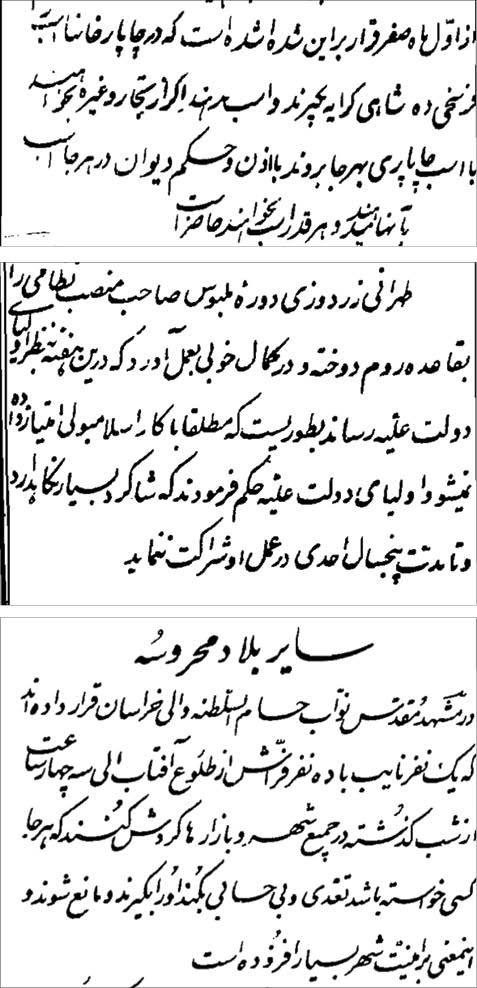 از اوّل ماه صفر قرار بر این شده شده است که در چاپارخانها اسب
فرسخی ده شاهی کرایه بگیرند و اسب بدهند اگر از تجار و غیره بخواهند
با اسب چاپاری بهر جا بروند با اذن و حکم دیوان در هر جا اسب
بآنها میدهند و هر قدر اسب بخواهند حاضر است
طهرانی زردوزی دورهٔ ملبوس صاحب منصب نظامی را
بقاعده روم دوخته و در کمال خوبی بعمل آورد که درین هفته بنظر اولیای
دولت علیّه رساند بطوریست که مطلقا با کار اسلامبولی امتیاز داده
نمیشود اولیای دولت علیّه حکم فرمودند که شاکرد بسیار نکاهدارد
و تا مدت پنجسال احدی در عمل او شراکت ننماید
سایر بلاد محروسه
در مشهد مقدّس نوّاب حسام السّلطنه والی خراسان قرار داده‌اند
که یک نفر نایب با ده نفر فرّاش از طلوع آفتاب الی سه چهار ساعت
از شب کذشته در جمیع شهر و بازارها کردش کنند که هر جا
کسی خواسته باشد تعدی و بی حسابی بکند او را بگیرند و مانع شوند و
اینمعنی بر امنیّت شهر بسیار افزوده است